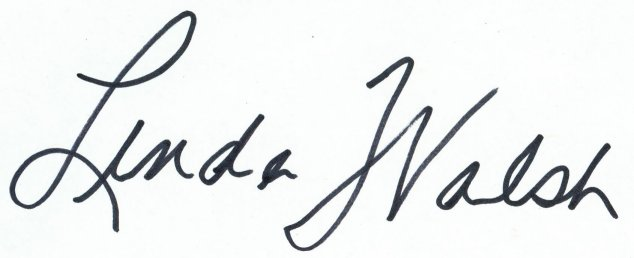 Linda Walsh